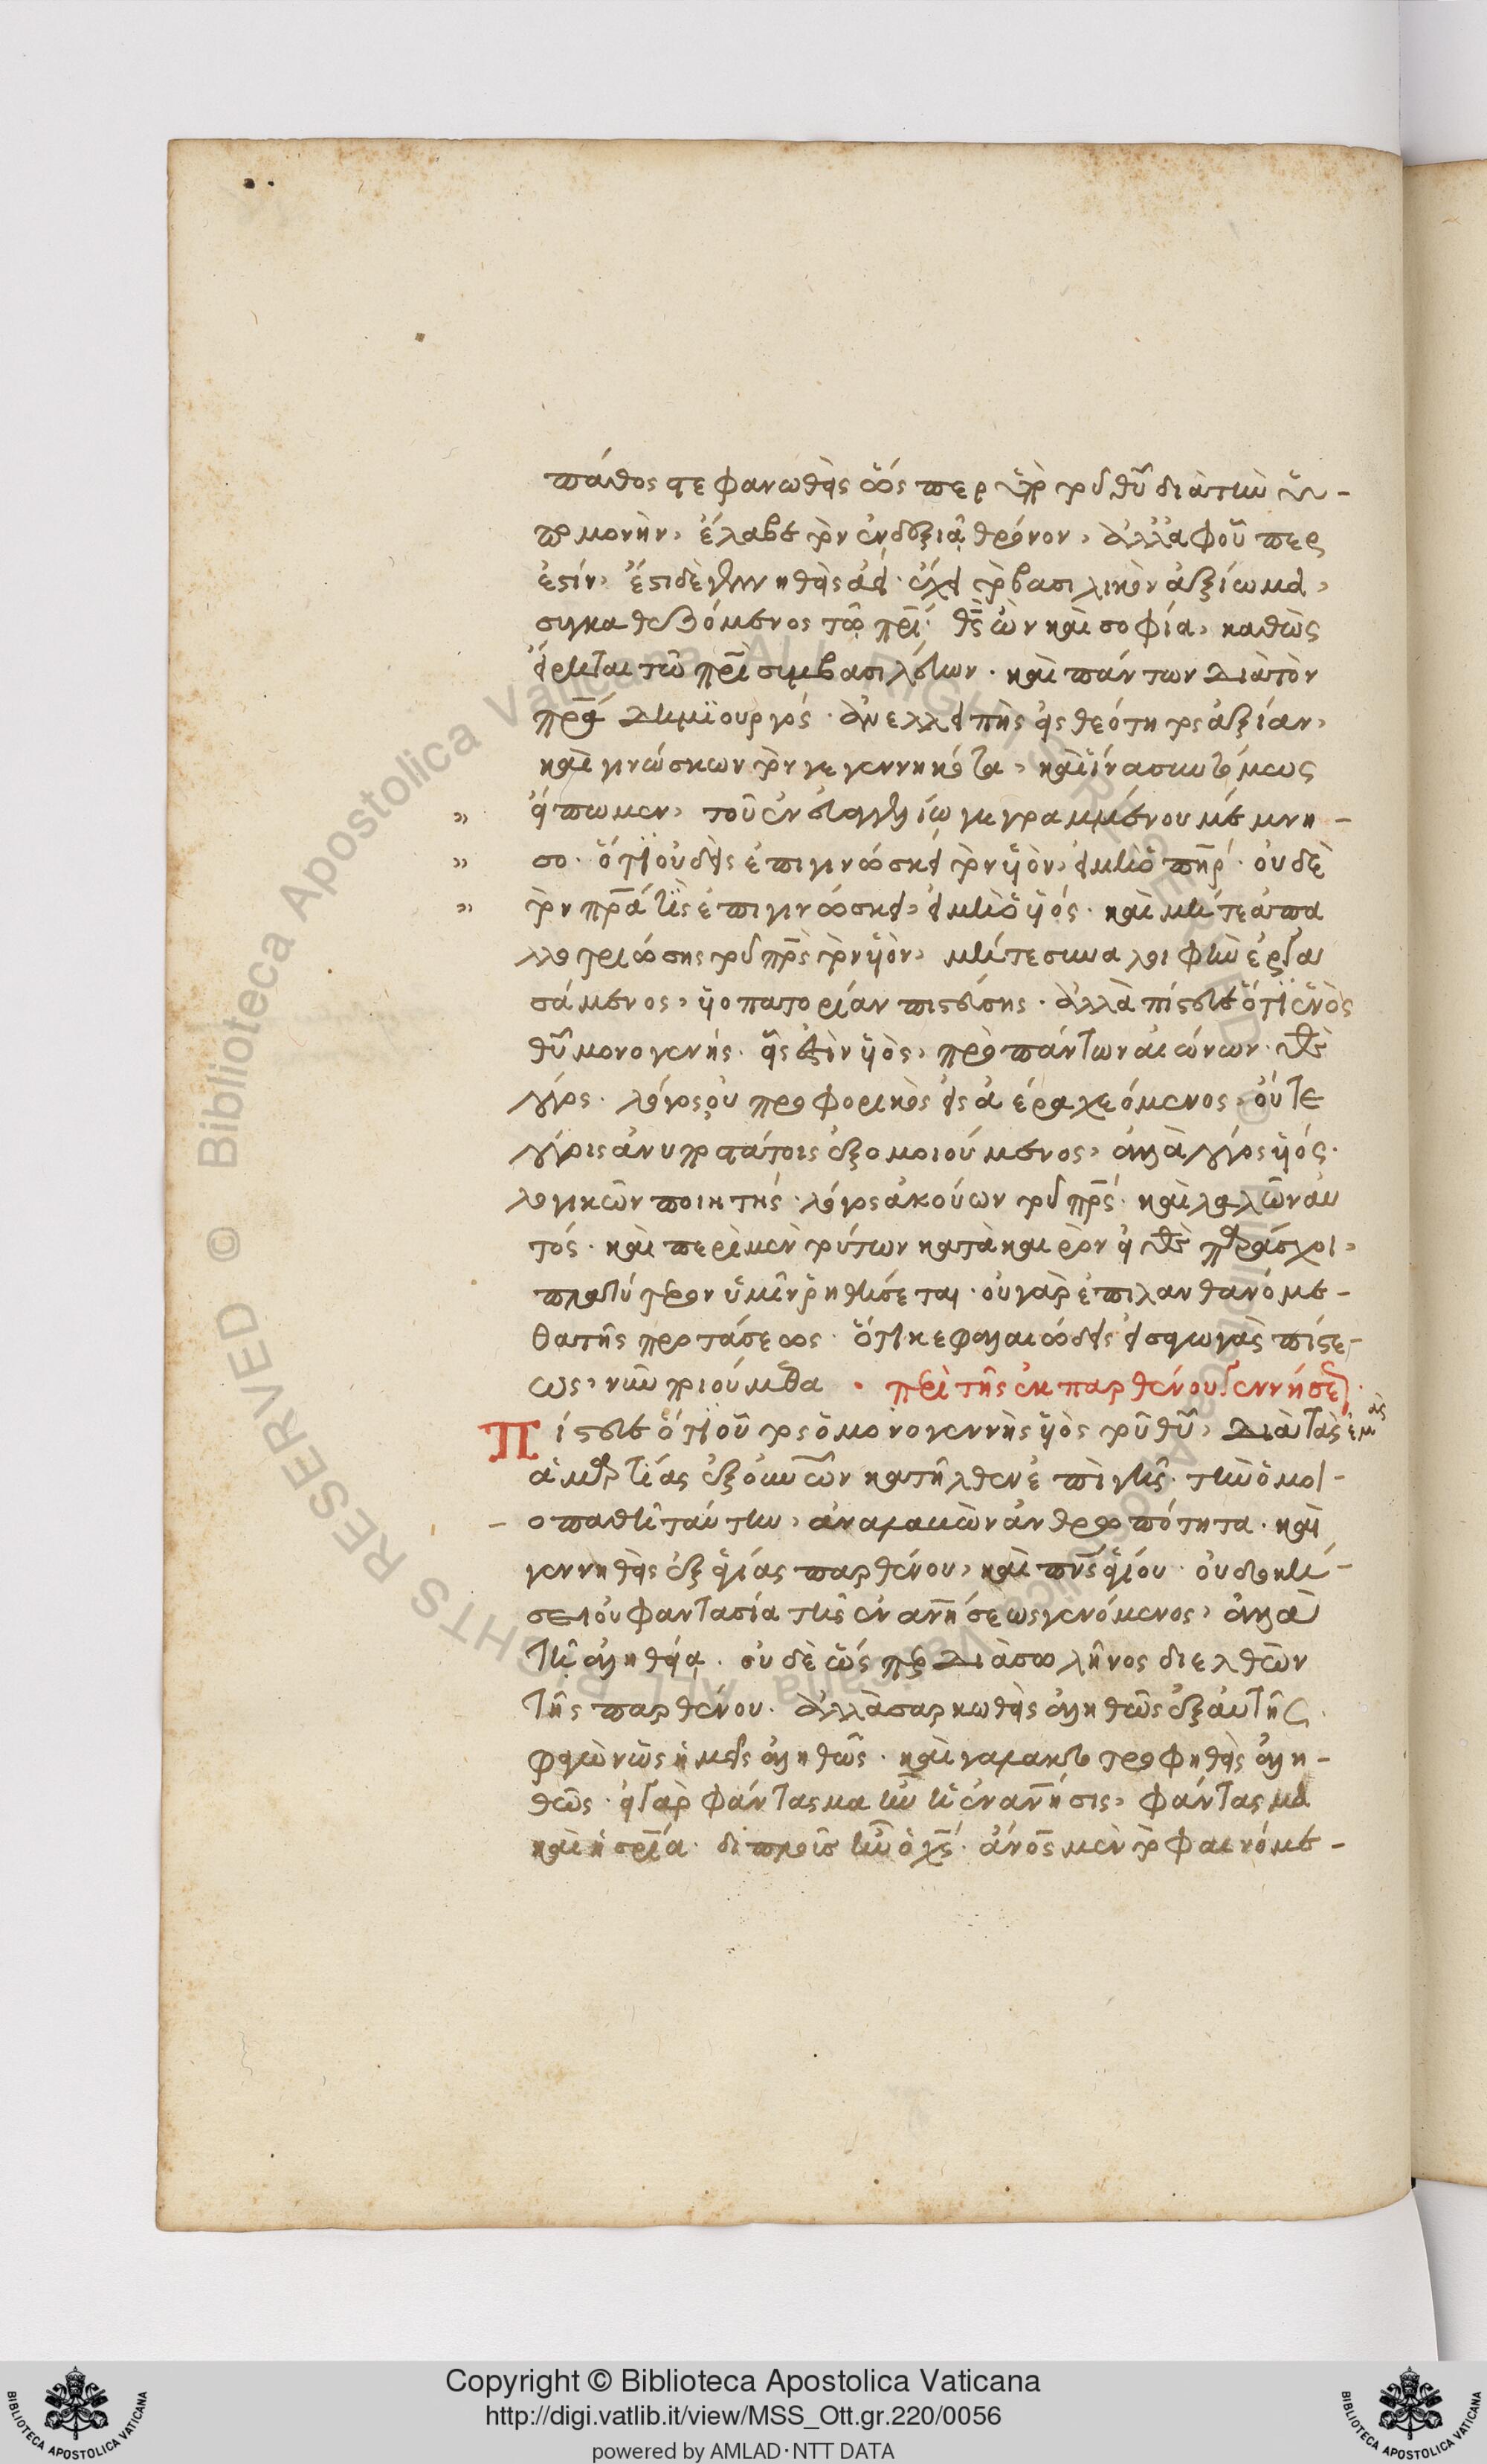 πάθος στεφανωθεὶς ὥσπερ ὑπὸ τοῦ θυ διὰ τὴν ὑ-
πομονὴν, ἔλαβε τὸν ἐν δεξιᾷ θρόνον, ἀλλ' ἀφοῦ περ
ἐστίν, ἔστι δὲ γεννηθεὶς ἀεί· ἔχει τὸ βασιλικὸν ἀξίωμα,
συγκαθεζόμενος τῷ πρί· θς ὢν καὶ σοφία, καθὼς
εἴρηται τῷ πρὶ συμβασιλεύων· καὶ πάντων διὰ τὸν
πρα δημιουργός· ἀνελλειπὴς εἰς θεότητος ἀξίαν,
καὶ γινώσκων τὸν γεγεννηκότα, καὶ ἵνα συντόμως
» εἴπωμεν, τοῦ ἐν εὐαγγελίω γεγραμμένου μέμνη-
» σο· ὅτι οὐδεὶς ἐπιγινώσκει τὸν ὑὸν, εἰ μὴ ὁ πηρ· οὐδὲ
» τὸν πρα τὶς ἐπιγινώσκει, εἰ μὴ ὁ ὑός· καὶ μήτε ἀπα
λλοτριώσης τοῦ πρς τὸν ὑὸν, μήτε συναλοιφὴν ἐργα
σάμενος, ὑοπατορίαν πιστεύσης· ἀλλὰ πίστευε ὅτι ἑνὸς
θυ μονογενής· εἷς ἐστὶν ὑὸς, πρὸ πάντων αἰώνων θς
λόγος· λόγος οὐ προφορικὸς εἰς ἀέρα χεόμενος, οὔτε
λόγοις ἀνυποστάτοις ἐξομοιούμενος, ἀλλὰ λόγος ὑός·
λογικῶν ποιητής· λόγος ἀκούων τοῦ πρς· καὶ λαλῶν αὐ
τός· καὶ περὶ μὲν τούτων κατὰ καιρὸν εἰ θς παράσχοι,
πλατύτερον ὑμῖν ῥηθήσεται· οὐ γὰρ ἐπιλανθανόμε-
θα τῆς προτάσεως· ὅτι κεφαλαιώδεις εἰσαγωγὰς πίστε-
ως, νῦν ποιούμεθα · περὶ τῆς ἐκ παρθένου γεννήσεως·
Πίστευε ὅτι οὗτος ὁ μονογεννὴς ὑὸς τοῦ θυ, διὰ τὰς ἡμᾶς
ἁμαρτίας ἐξ ουνῶν κατῆλθεν ἐπὶ γῆς· τὴν ὁμοι-
οπαθῆ ταύτην, ἀναλαβὼν ἀνθρωπότητα· καὶ
γεννηθεὶς ἐξ ἁγίας παρθένου, καὶ πνς ἁγίου· οὐ δοκή-
σει οὐ φαντασία τῆς ἐνανήσεως γενόμενος, ἀλλὰ
τῇ ἀληθείᾳ· οὐδὲ ὥσπερ διὰ σωλῆνος διελθὼν
τῆς παρθένου· ἀλλὰ σαρκωθεὶς ἀληθῶς ἐξ αὐτῆς·
φαγὼν ὡς ἡμεῖς ἀληθῶς· καὶ γαλακτοτροφηθεὶς ἀλη-
θῶς· εἰ γὰρ φάντασμα ἦν ἡ ἐνανήσις, φάντασμα
καὶ ἡ σρία· διπλοῦς ἦν ὁ χς· ἄνος μὲν τὸ φαινόμε-
Copyright © Biblioteca Apostolica Vaticana
http://digi.vatlib.it/view/MSS_Ott.gr.220/0056
powered by AMLAD·NTT DATA
BIBLIOTECA APOSTOLICA VATICANA
BIBLIOTECA APOSTOLICA VATICANA